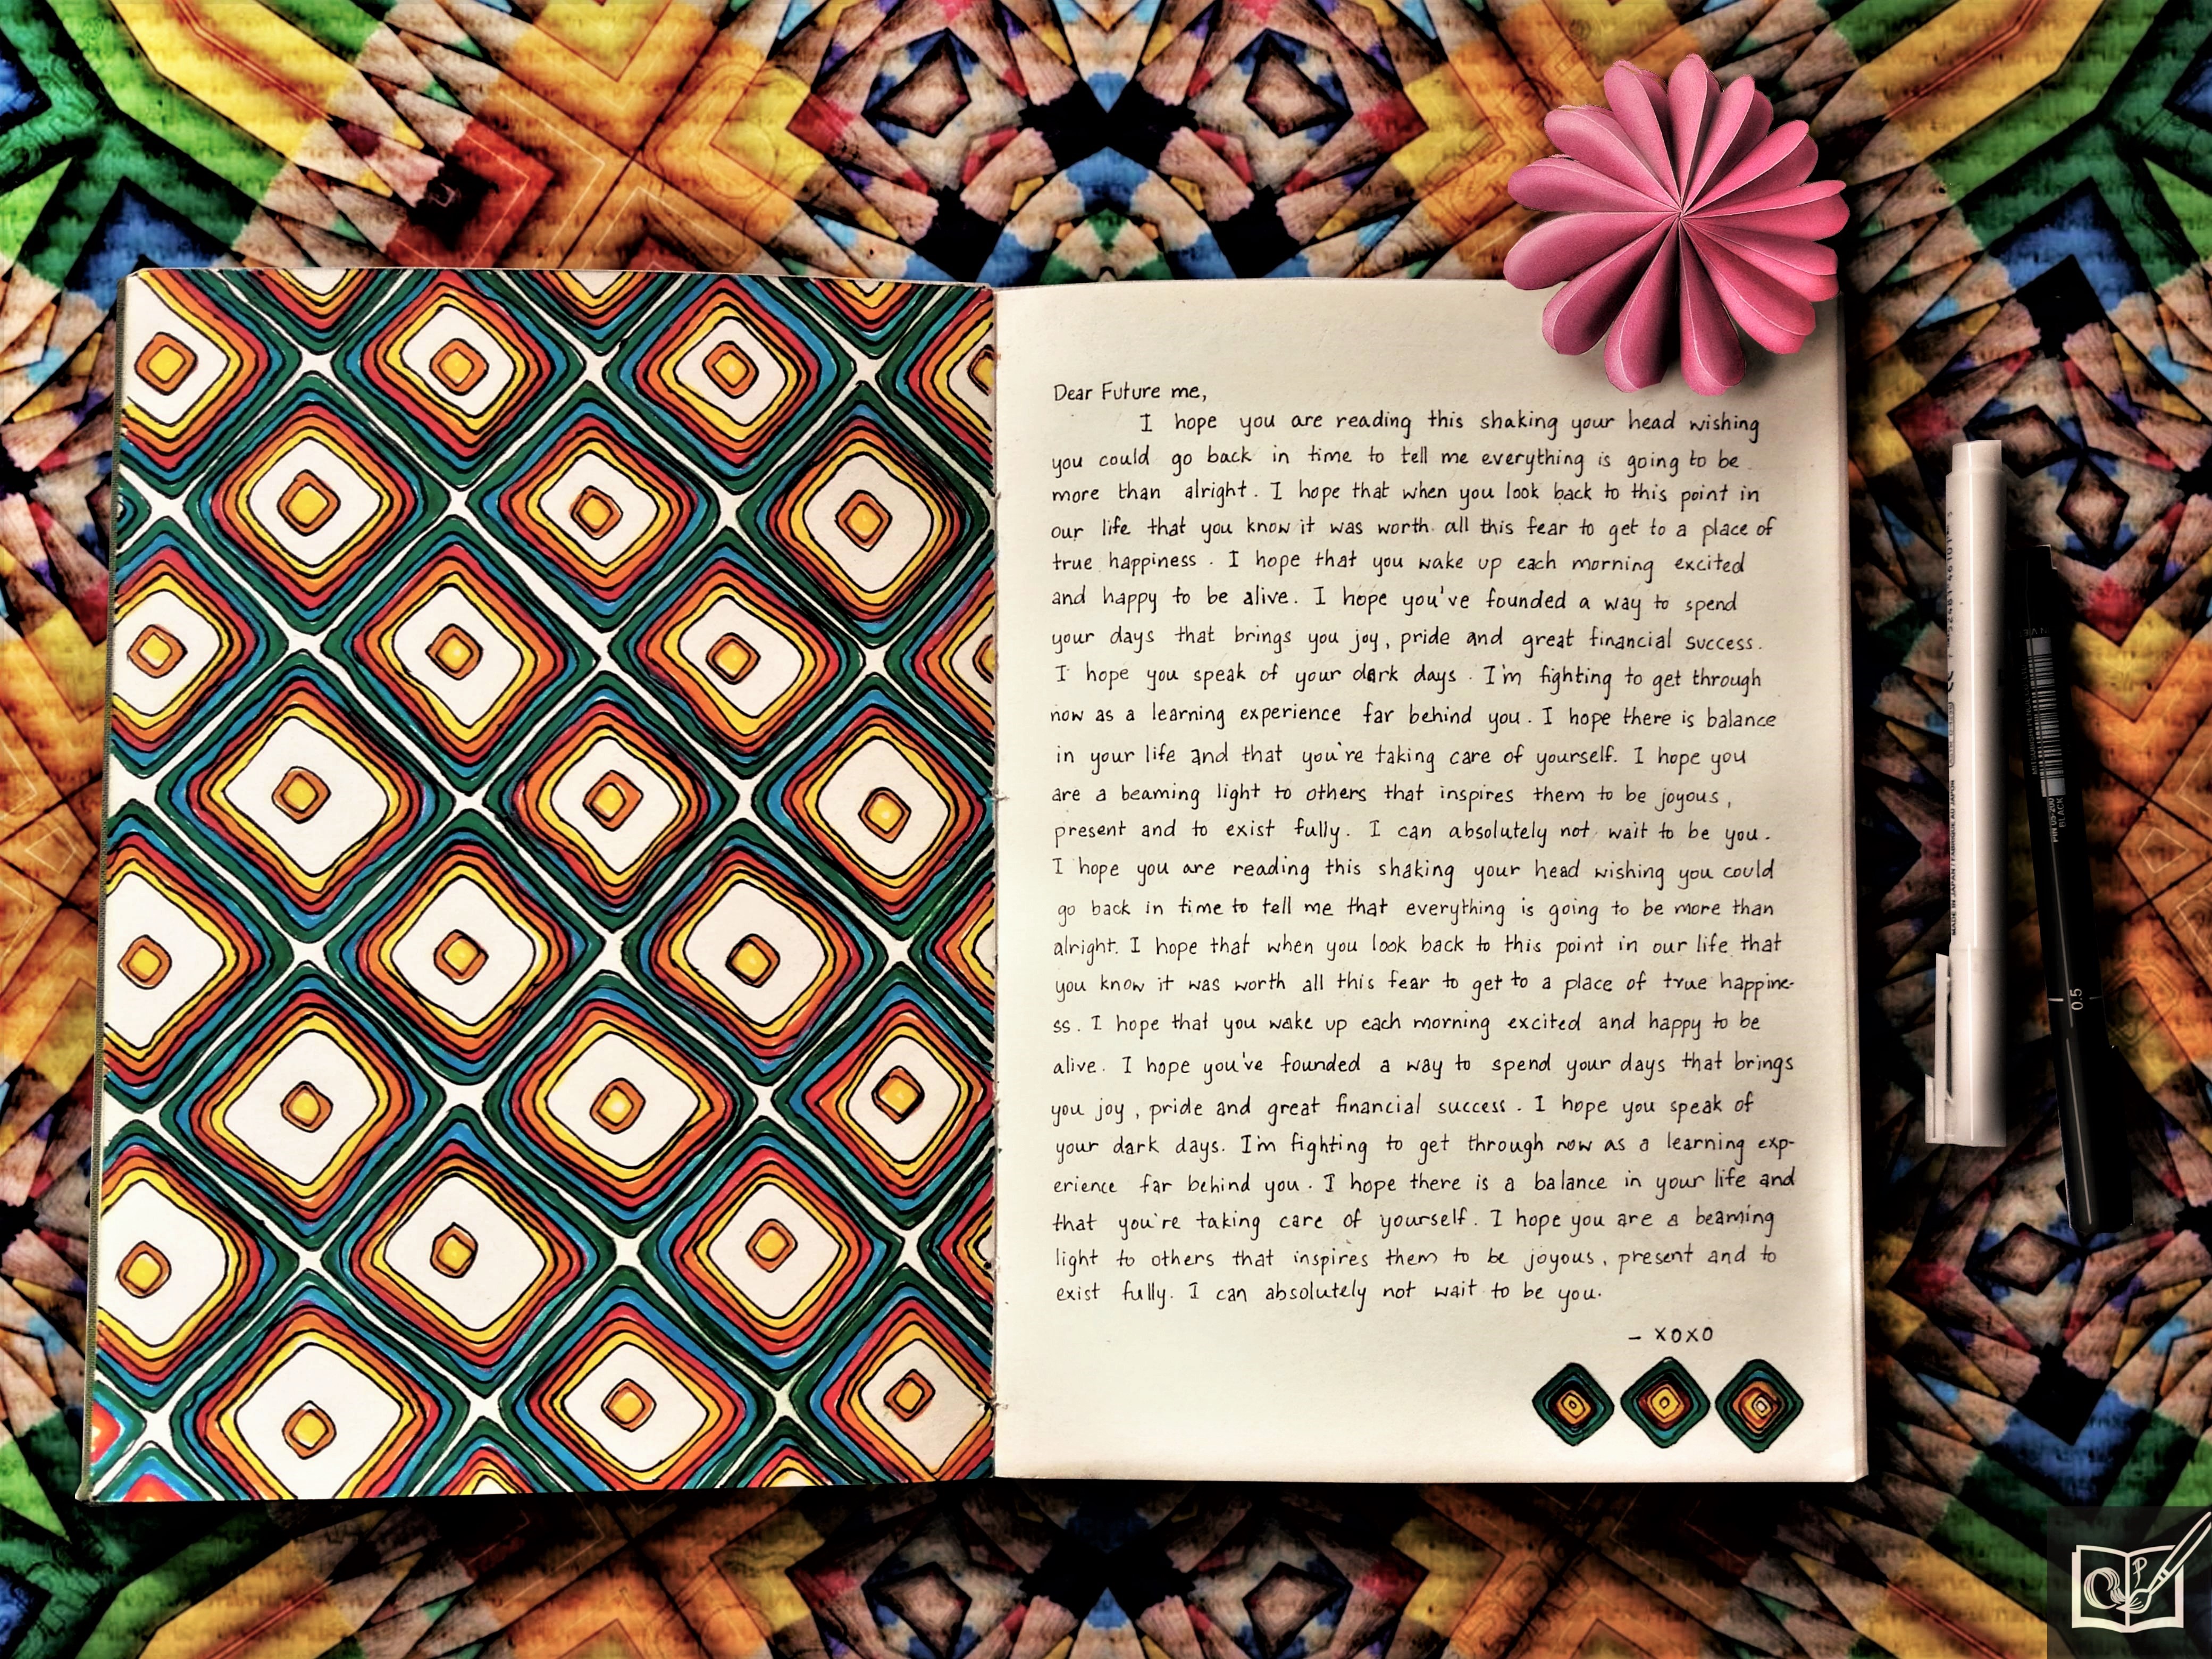 Dear Future me,
I hope you are reading this shaking your head wishing
you could go back in time to tell me everything is going to be
more than alright. I hope that when you look back to this point in
our life that you know it was worth all this fear to get to a place of
true happiness. I hope that you wake up each morning excited
and happy to be alive. I hope you've founded a way to spend
your days that brings you joy, pride and great financial success.
I hope you speak of your dark days. I'm fighting to get through
now as a learning experience far behind you. I hope there is balance
in your life and that you're taking care of yourself. I hope you
are a beaming light to others that inspires them to be joyous,
present and to exist fully. I can absolutely not wait to be you.
I hope you are reading this shaking your head wishing you could
go back in time to tell me that everything is going to be more than
alright. I hope that when you look back to this point in our life that
you know it was worth all this fear to get to a place of true happine-
ss. I hope that you wake up each morning excited and happy to be
alive. I hope you've founded a way to spend your days that brings
you joy, pride and great financial success. I hope you speak of
your dark days. I'm fighting to get through now as a learning exp-
erience far behind you. I hope there is a balance in your life and
that you're taking care of yourself. I hope you are a beaming
light to others that inspires them to be joyous, present and to
exist fully. I can absolutely not wait to be you.
- XOXO
MADE IN JAPAN / FABRIQUE AU JAPON
BLACK
0.5